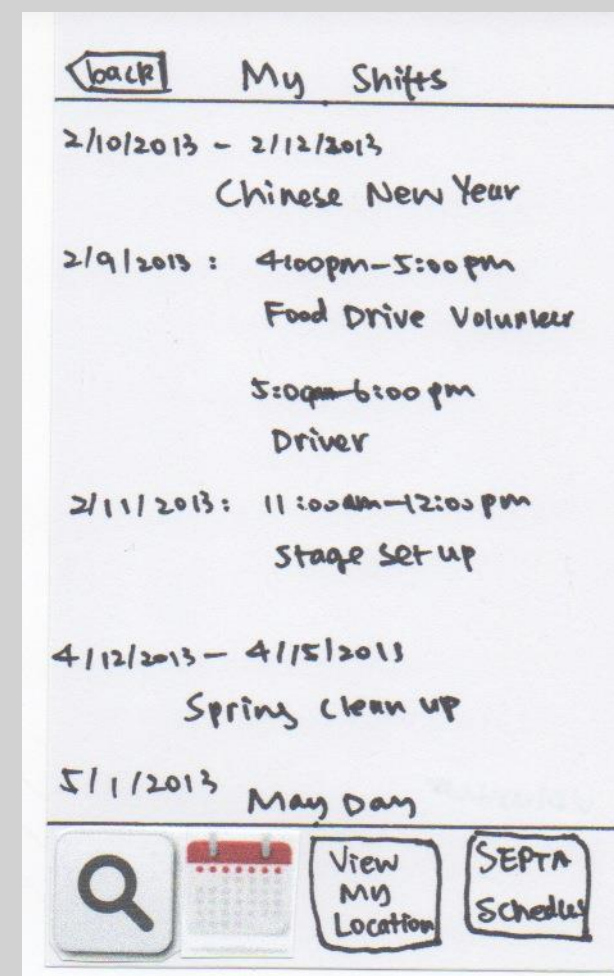 back My Shifts
2/10/2013 - 2/12/2013
Chinese New Year
2/9/2013: 4:00pm-5:00pm
Food Drive Volunteer
5:00pm-6:00pm
Driver
2/11/2013: 11:00am-12:00pm
Stage Set up
4/12/2013 - 4/15/2013
Spring Clean up
5/1/2013 May Day
View
My
Location
SEPTA
Schedules